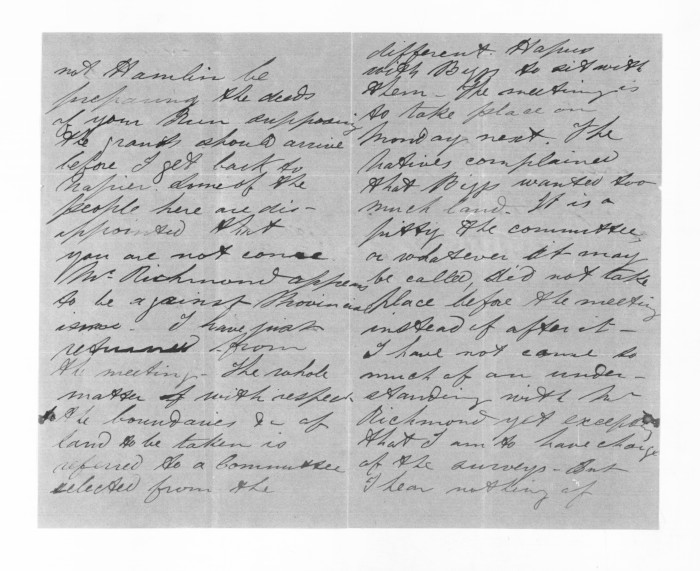 not Hamlin be
preparing the deeds
of your Run supposing
the grants should arrive
before I get back to
Napier. Some of the
people here are dis-
appointed that
you are not come
Mr. Richmond appears
to be against Provincial
ism. I have just
returned from
the meeting. The whole
matter of with respect
to the boundaries &c of
land to be taken is
referred to a Committee
selected from the
different Hapus
with Biggs to sit with
them - The meeting is
to take place on
Monday next The
Natives complained
that Biggs wanted too
much land. It is a
pitty the committee,
or whatever it may
be called, did not take
place before the meeting
instead of after it -
I have not come to
much of an under-
standing with Mr
Richmond yet except
that I am to have charge
of the surveys - But
I hear nothing of